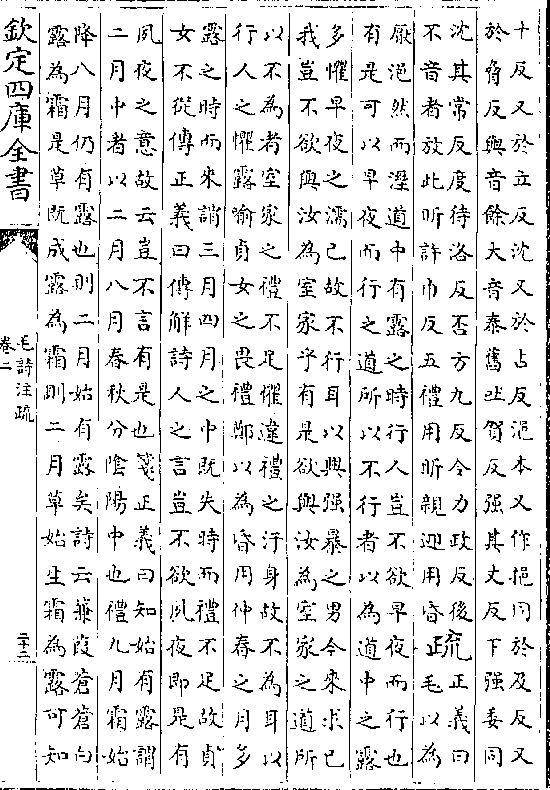 十反又於立反沈又於占反浥本又作挹同於及反又
於角反與音餘大音泰舊吐賀反强其丈反下强委同
沈其常反度待洛反否方九反令力政反後
不音者放此昕許巾反五禮用昕親迎用昏
疏
正義曰
毛以為
厭浥然而溼道中有露之時行人豈不欲早夜而行也
有是可以早夜而行之道所以不行者以為道中之露
多懼早夜之濡己故不行耳以興强暴之男今來求己
我豈不欲與汝為室家乎有是欲與汝為室家之道所
以不為者室家之禮不足懼違禮之汙身故不為耳以
行人之懼露喻貞女之畏禮鄭以為昏用仲春之月多
露之時而來謂三月四月之中既失時而禮不足故貞
女不從傳正義曰傳解詩人之言豈不欲夙夜即是有
夙夜之意故云豈不言有是也箋正義曰知始有露謂
二月中者以二月八月春秋分陰陽中也禮九月霜始
降八月仍有露也則二月始有露矣詩云蒹葭蒼蒼白
露為霜是草既成露為霜則二月草始生霜為露可知
欽定四庫全書
毛詩注疏
卷二